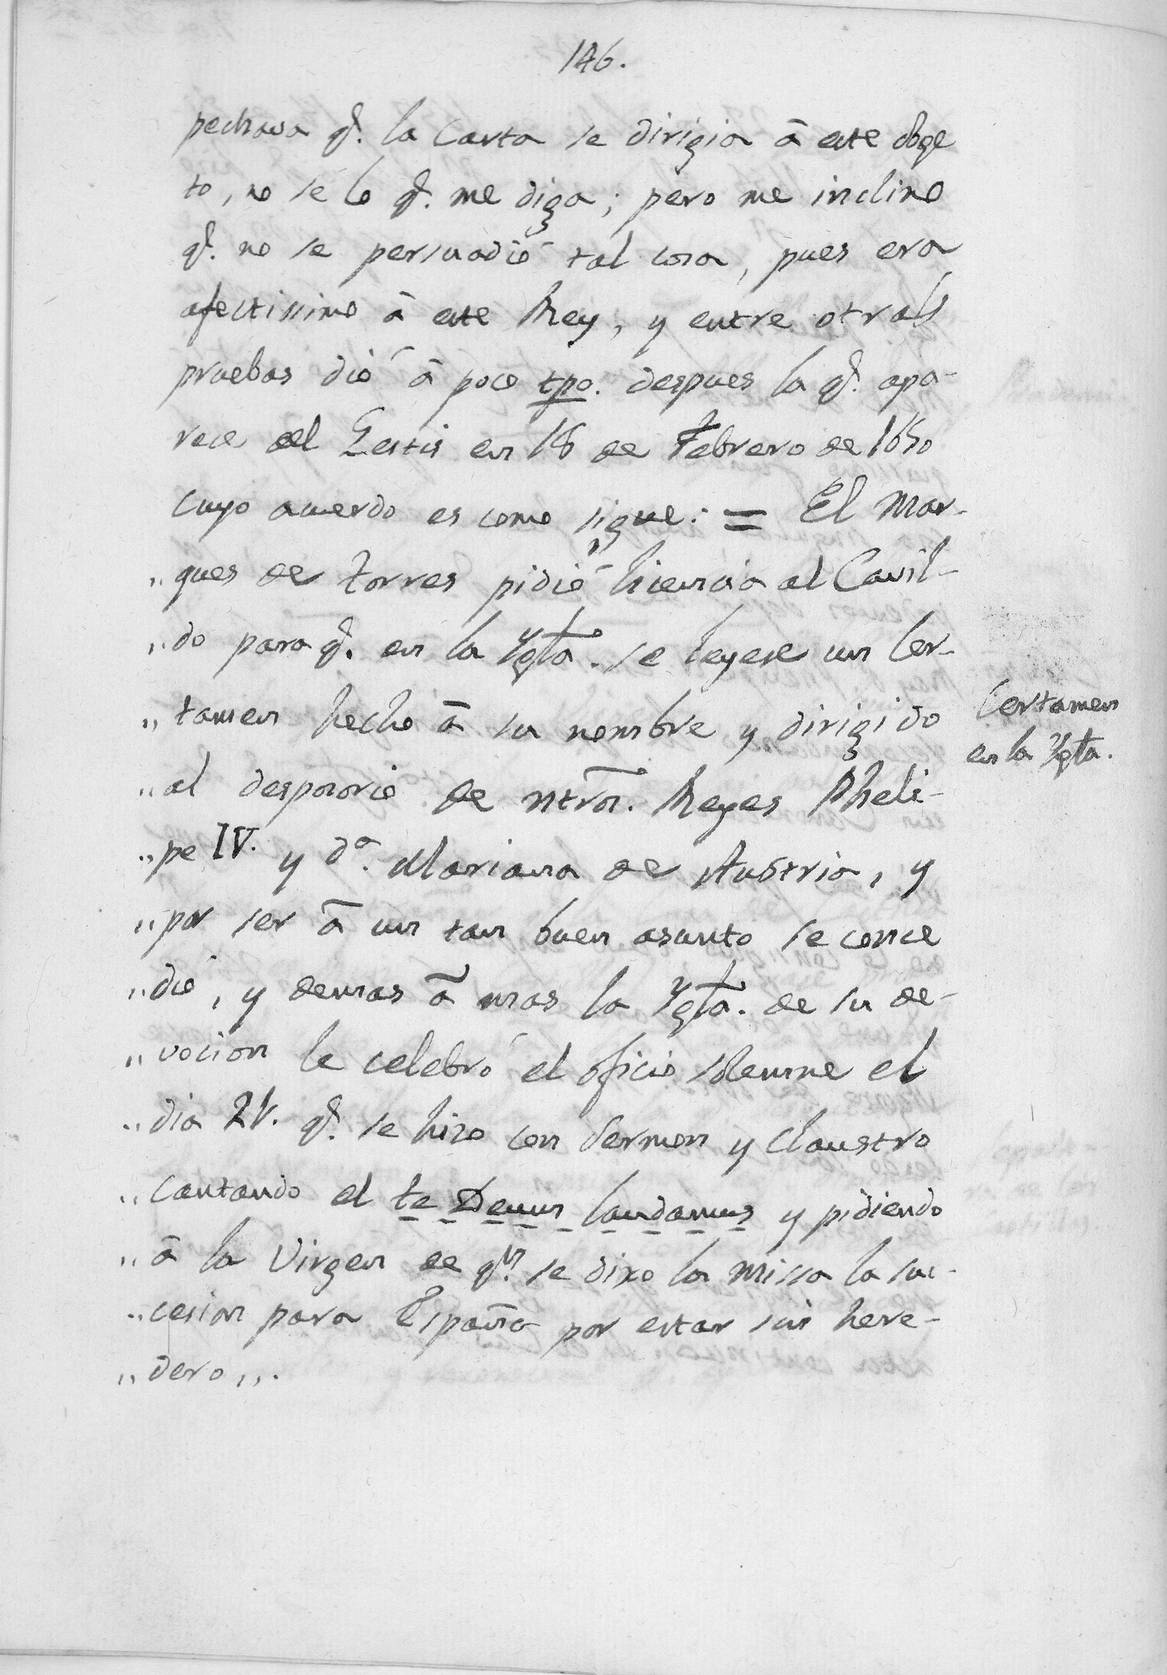 146.
pechava q.e la Carta se dirigia â este obge
to, no sé lo q.e me diga; pero me inclino
q.e no se persuadió tal cosa, pues era
afectissimo â este Rey, y entre otras
pruebas dió â poco tpo. despues la q.e apa-
rece del Gestis en 18 de Febrero de 1650
cuyo acuerdo es como sigue: = El Mar-
„ques de Torres pidió licencia al Cavil-
„do para q.e en la Ygla. se leyese un Cer-
„tamen hecho â su nombre y dirigido
„al desposorio de ntros. Reyes Pheli-
„pe IV. y d.a Mariana de Austria, y
„por ser â un tan buen asunto se conce
„dió, y demas â mas la Ygla. de su de-
„vocion le celebró el oficio solemne el
„dia 21. q.e se hizo con Sermon y Claustro
„cantando el te Deum laudamus y pidiendo
„â la Virgen de q.n se dixo la Missa la suc-
„cesion para España por estar sin here-
„dero„.
Certamen
en la Ygla.